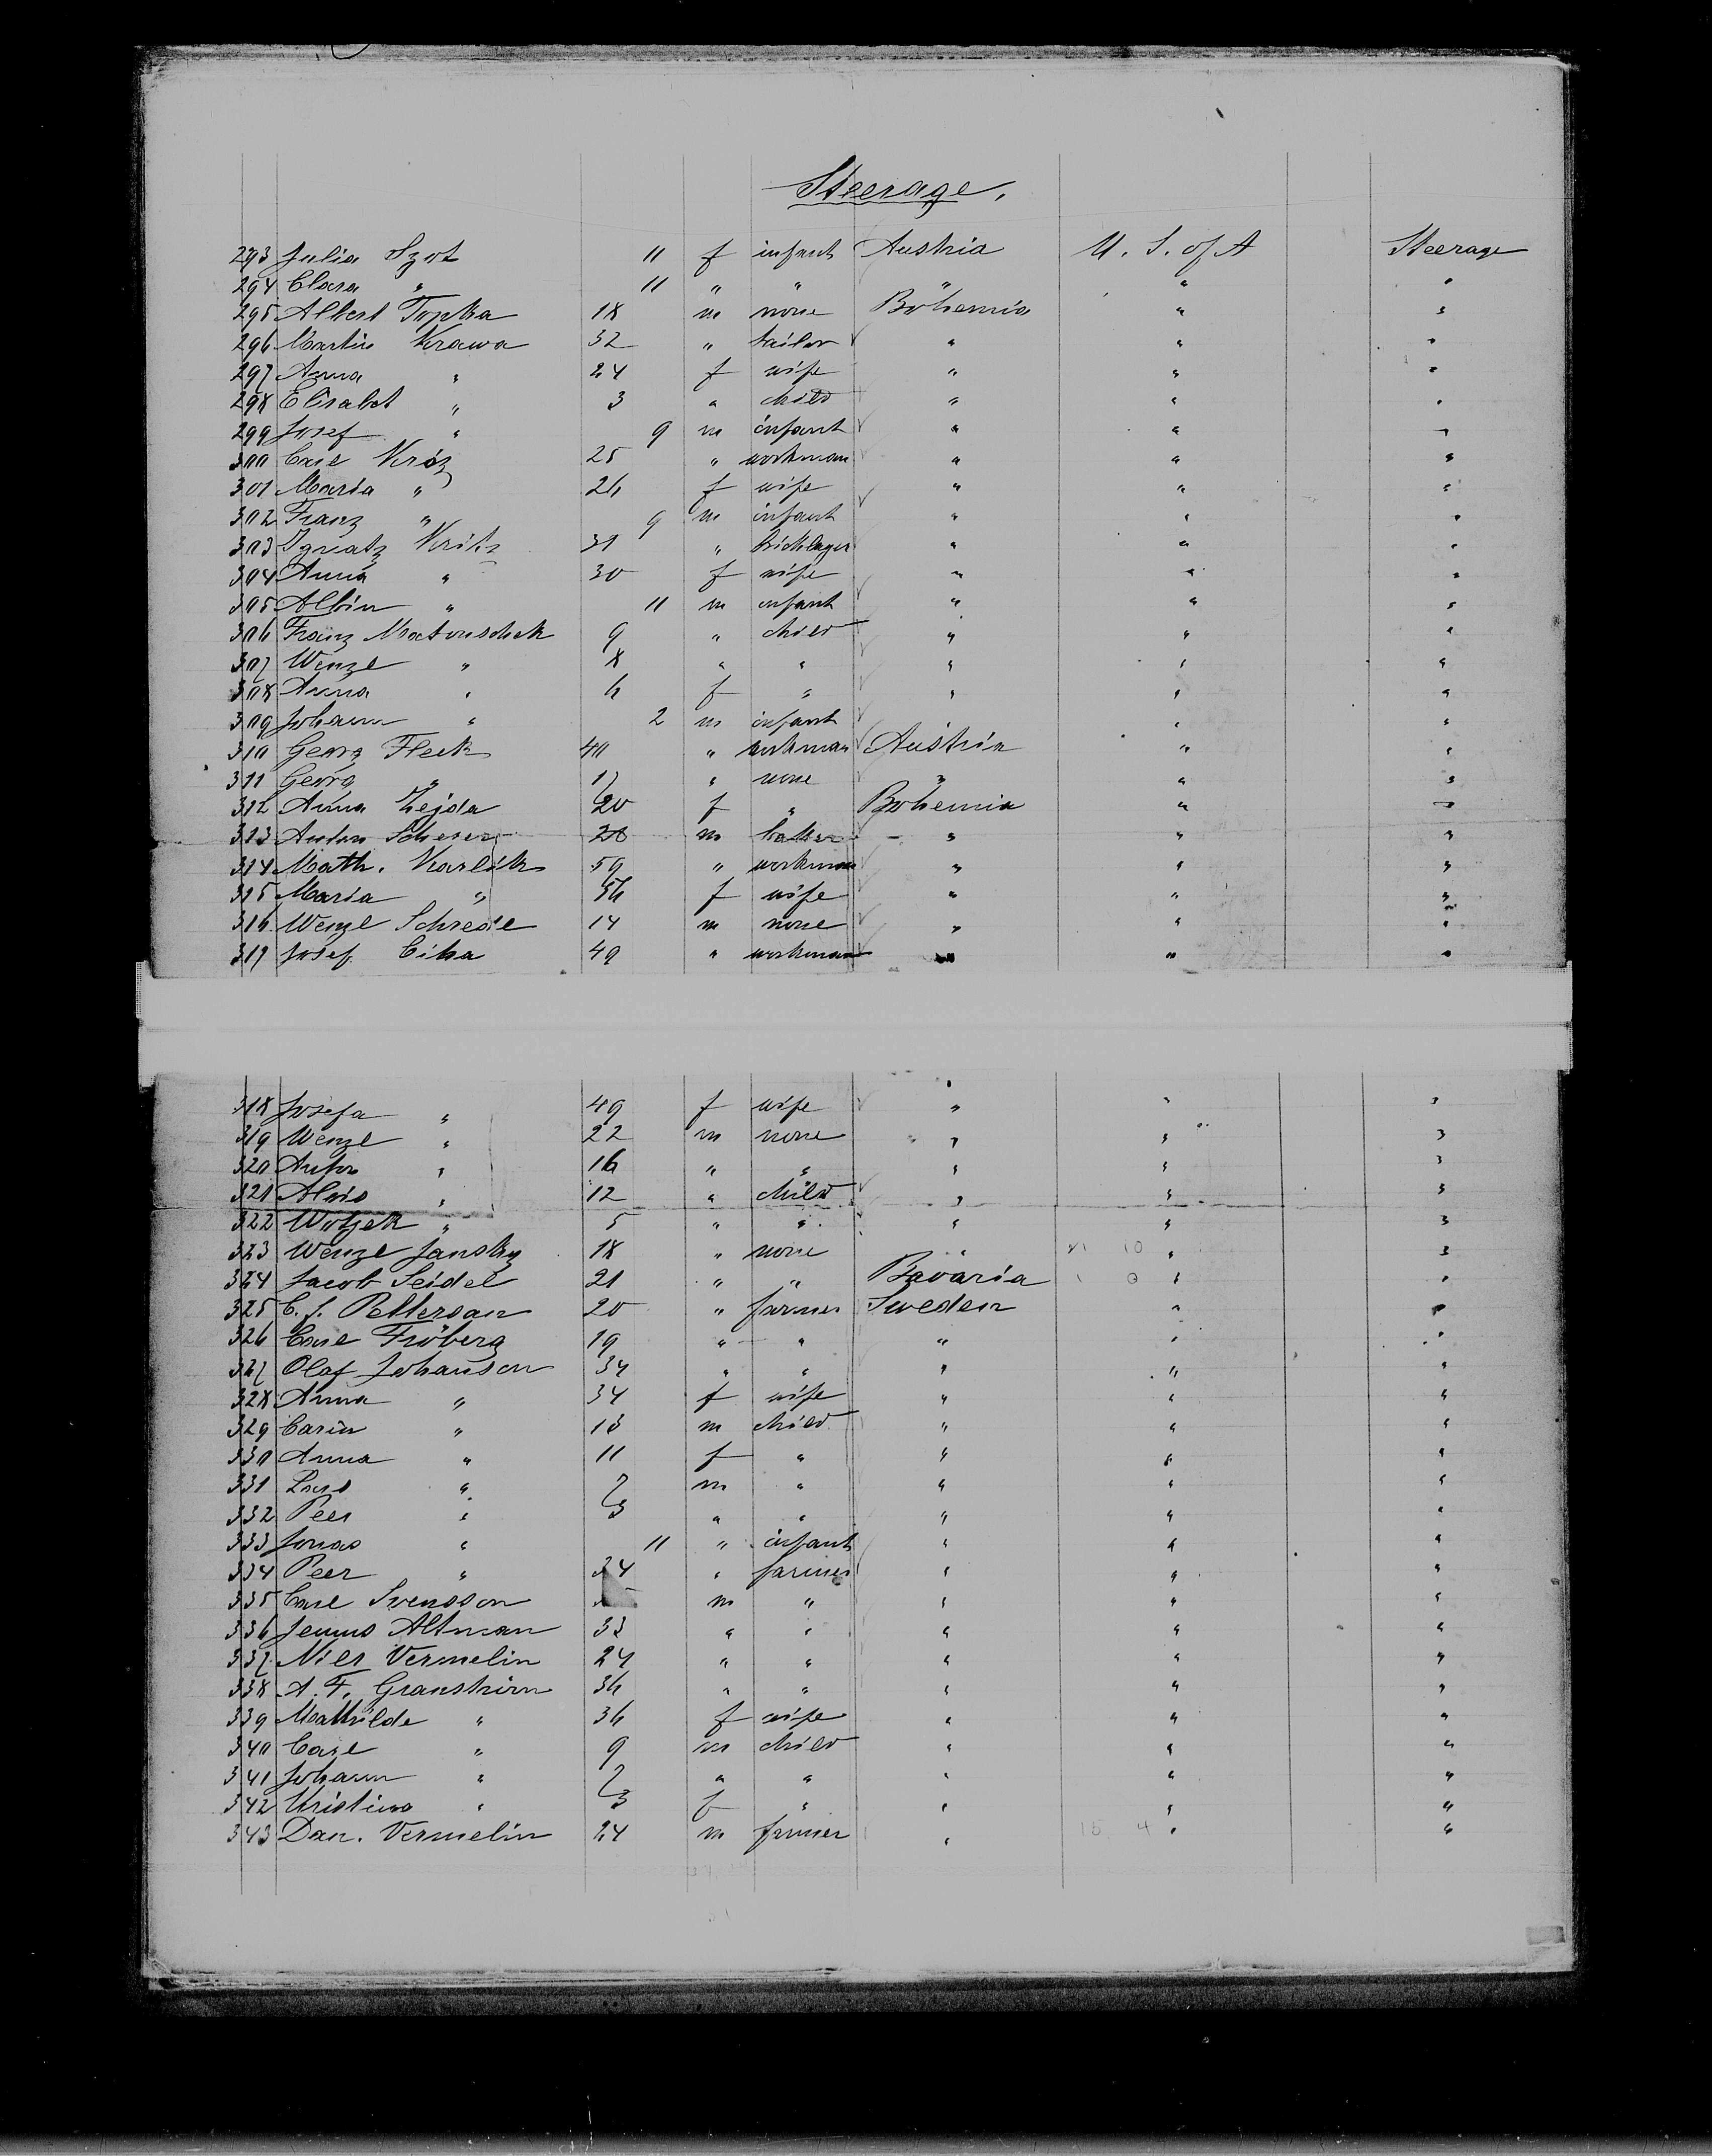 Steerage.
293 Julia Szot 11 f infant Austria U. S. of A Steerage
294 Clara " 11 " " " " "
295 Albert Topka 18 m none Bohemia " "
296 Martin Krawa 32 " tailor " " "
297 Anna " 24 f wife " " "
298 Elisabet " 3 " child " " "
299 Josef " 9 m infant " " "
300 Carl Króz 25 " workman " " "
301 Maria " 26 f wife " " "
302 Franz " 9 m infant " " "
303 Ignatz Kritz 31 " bricklayer " " "
304 Anna " 30 f wife " " "
305 Albin " 11 m infant " " "
306 Franz Matouschek 9 " child " " "
307 Wenzl " 8 " " " " "
308 Anna " 6 f " " " "
309 Johann " 2 m infant " "
310 Georg Fleck 40 " workman Austria " "
311 Georg " 17 " none " " "
312 Anna Zejda 20 f " Bohemia " "
313 Anton Scherer m baker " " "
314 Math. Karlik 59 " workman " " "
315 Maria " 56 f wife " " "
316 Wenzl Schredl 14 m none " " "
317 Josef Cika 49 " workman " " "
318 Josefa " 49 f wife " " "
319 Wenzl " 22 m none " " "
320 Anton " 16 " " " " "
321 Alois " 12 " child " " "
322 Wotjek " 5 " " " " "
323 Wenzl Jansky 18 " none " " "
324 Jacob Seidel 21 " " Bavaria " "
325 C. J. Petterson 20 " farmer Sweden " "
326 Carl Fröberg 19 " " " " "
327 Olaf Johanson 34 " " " " "
328 Anna " 34 f wife " " "
329 Carin " 13 m child " " "
330 Anna " 11 f " " " "
331 Lars " 7 m " " " "
332 Peer " 3 " " " " "
333 Jonas " 11 " infant " " "
334 Peer " 34 " farmer " " "
335 Carl Svensson m " " " "
336 Altman 33 " " " " "
337 Nils Vermelin 24 " " " " "
338 A. F. Granström 36 " " " " "
339 Mathilde " 36 f wife " " "
340 Carl " 9 m child " " "
341 Johann " 7 " " " " "
342 Kristina " 3 f " " " "
343 Dan. Vermelin 24 m farmer " " "